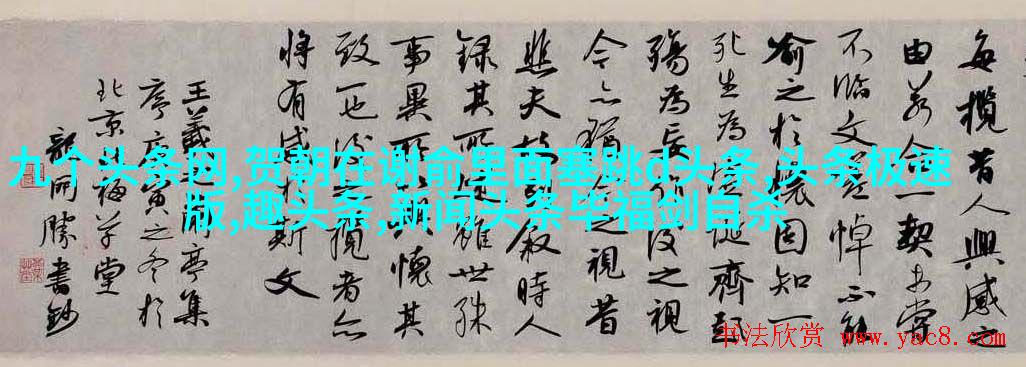 九个头条网,贺朝在谢俞里面塞跳d头条,头条极速
版,趣头条,新闻头条毕福剑自杀
每攬昔人興感之
由若合一契未嘗
不臨文嗟悼不能
喻之於懷固知一
死生為虛誕齊彭
殤為妄作後之視
今亦猶今之視昔
悲夫故列敘時人
錄其所述雖世殊
事異所以興懷其
致一也後之攬者亦
將有感於斯文
王羲之蘭亭集
序庚寅之冬於
北京梅草堂
開勝書鈔
书法欣赏 www.yac8.com